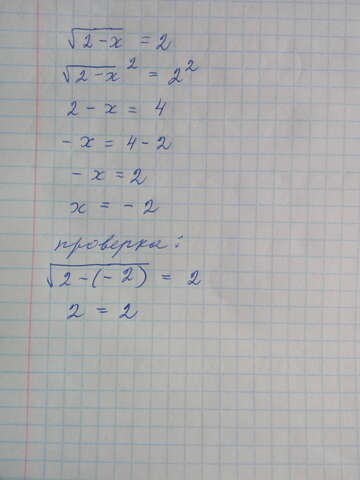 √2-x = 2
√2-x² = 2²
2 - x = 4
- x = 4 - 2
- x = 2
x = - 2
проверка:
√2-(-2) = 2
2 = 2